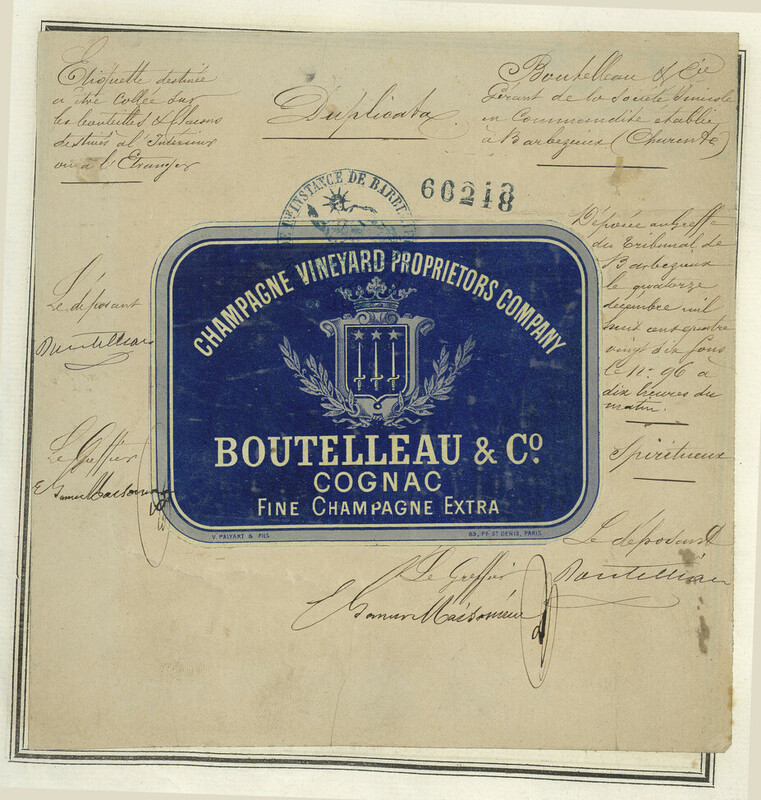 Etiquette destinée
à être collée sur
les bouteilles & flacons
destinés à l'Intérieur
ou à l'Etranger
Duplicata
Boutelleau & Cie
Gérant de la Société Vinicole
en Commandite établie
à Barbezieux (Charente)
DE 1ère INSTANCE DE BARBEZ
60218
Déposée au greffe
du Tribunal de
Barbezieux
le quatorze
décembre mil
huit cent quatre
vingt dix sous
le no. 96 à
dix heures du
matin.
Spiritueux
Le déposant
Boutelleau
Le Greffier
CHAMPAGNE VINEYARD PROPRIETORS COMPANY
BOUTELLEAU & Co.
COGNAC
FINE CHAMPAGNE EXTRA
V. PALYART & FILS
83, Fg ST DENIS, PARIS.
Le déposant
Boutelleau
Le Greffier